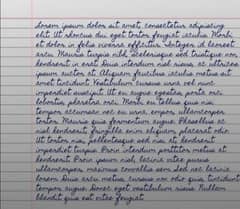 Lorem ipsum dolor sit amet, consectetur adipiscing
elit. Ut rhoncus dui eget tortor feugiat iaculis. Morbi
et dolor in felis viverra efficitur. Integer id laoreet
arcu. Mauris turpis nibh, scelerisque sed tristique non,
hendrerit in erat. Duis interdum nisl risus, ac ultrices
ipsum auctor at. Aliquam faucibus iaculis metus sit
amet tincidunt. Vestibulum cursus urna vel nunc
imperdiet suscipit. Ut eu augue egestas, porta orci
lobortis, pharetra orci. Morbi eu tellus quis nisi
tempor accumsan nec eu urna. ullamcorper
tortor. Mauris quis fermentum augue. Phasellus ac
nisl hendrerit, fringilla enim aliquam, placerat odio.
Ut tortor nisi, pellentesque sed nisi at, hendrerit
imperdiet turpis. Proin interdum porttitor metus at
hendrerit. Proin ipsum nisl, lacinia vitae purus
ullamcorper, maximus convallis sem. Sed nec lacinia
lorem. Duis arcu metus, cursus non odio quis, tincidunt
tempus augue. Donec eget vestibulum risus. Nullam
blandit quis est vitae feugiat.